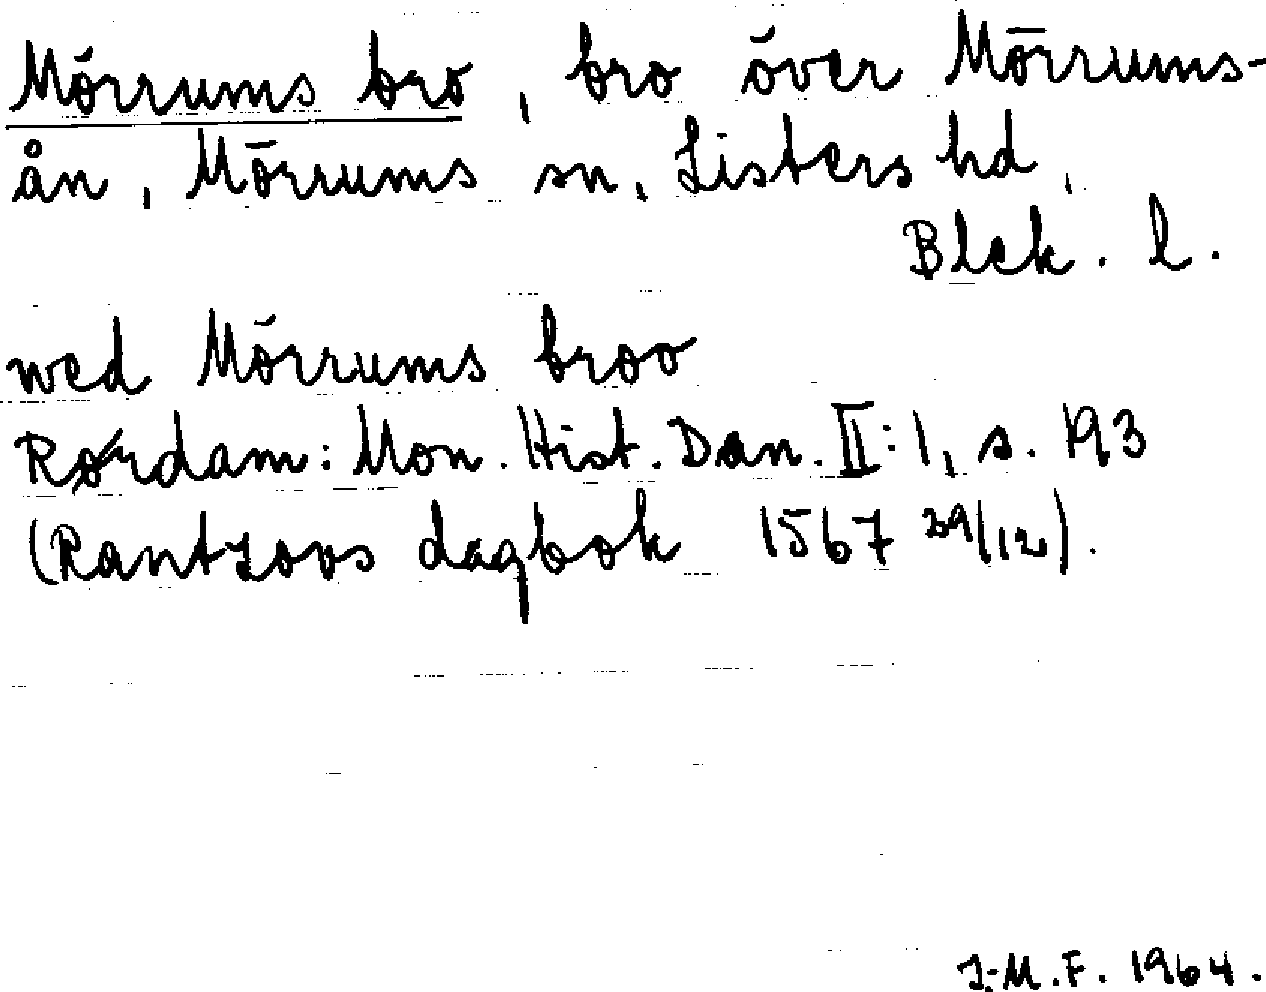 Mörrums bro, bro över Mörrums-
ån, Mörrums sn, Listers hd,
Blek. l.
wed Mörrums broo
Rørdam: Mon. Hist. Dan. II:1, s. 193
(Rantzovs dagbok 1567 29/12).
J.M.F. 1964.